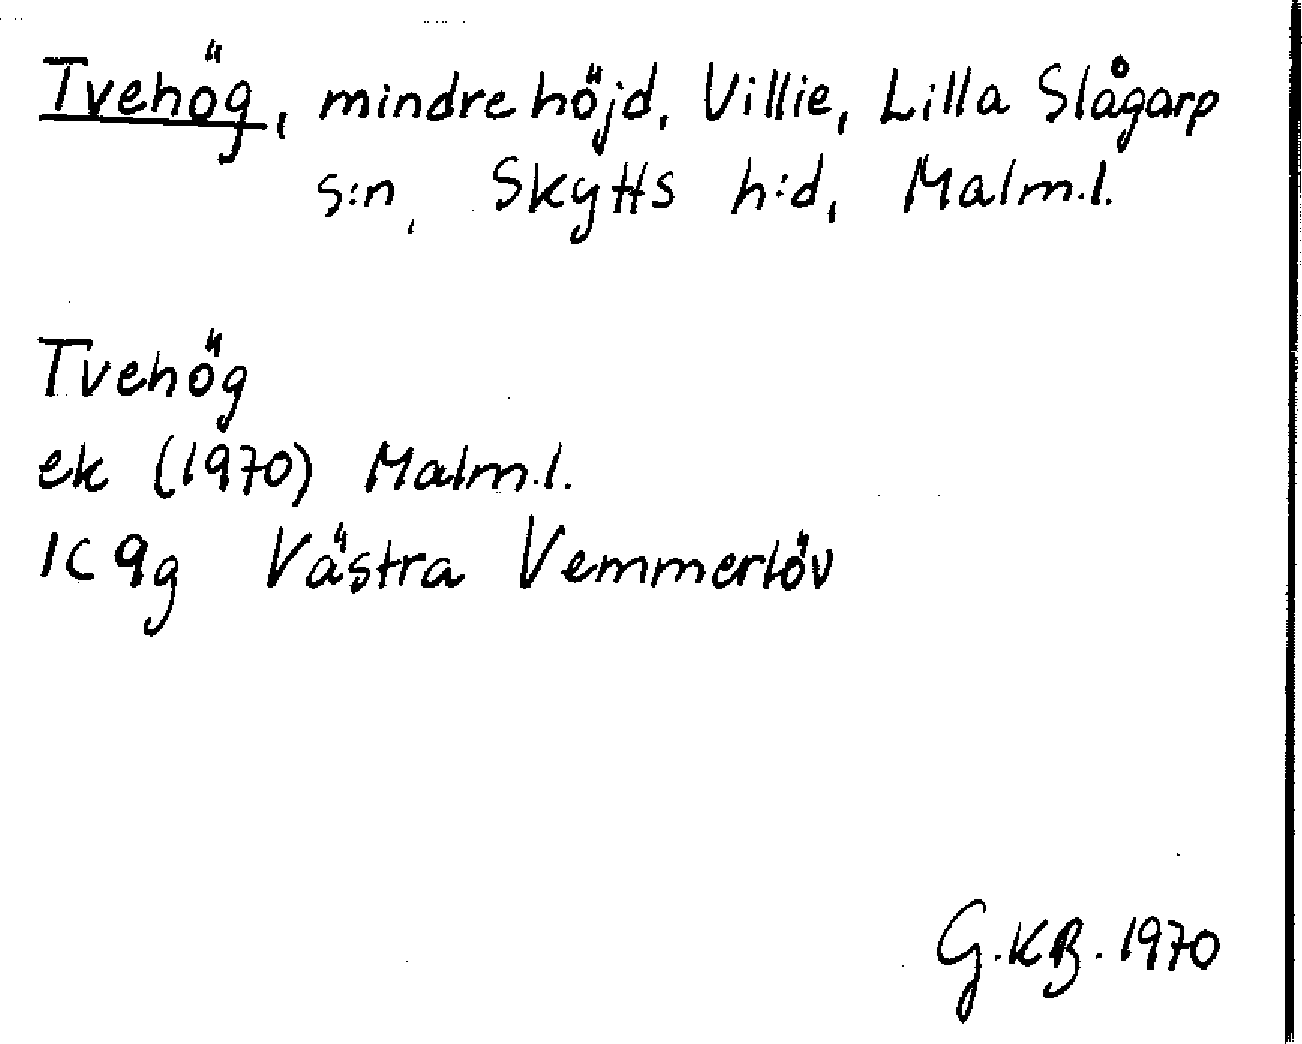 Tvehög, mindre höjd, Villie, Lilla Slågarp
s:n, Skytts h:d, Malm.l.
Tvehög
ek (1970) Malm.l.
1C 9g Västra Vemmerlöv
G.KB. 1970